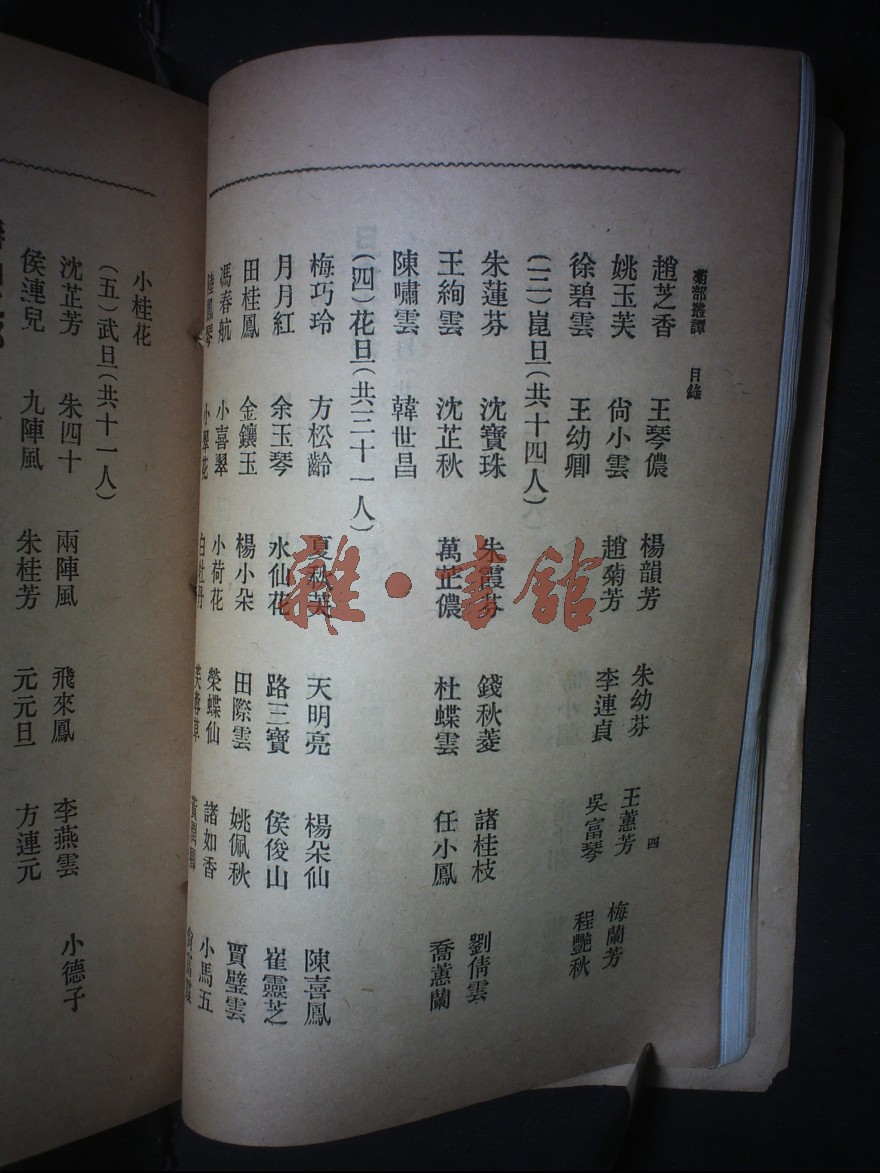 菊部叢譚　目錄　四
趙芝香　王琴儂　楊韻芳　朱幼芬　王蕙芳　梅蘭芳
姚玉芙　尙小雲　趙菊芳　李連貞　吳富琴　程艷秋
徐碧雲　王幼卿
（三）崑旦（共十四人）
朱蓮芬　沈寶珠　朱霞芬　錢秋菱　諸桂枝　劉倩雲
王絢雲　沈芷秋　萬芷儂　杜蝶雲　任小鳳　喬蕙蘭
陳嘯雲　韓世昌
（四）花旦（共三十一人）
梅巧玲　方松齡　夏秋芙　天明亮　楊朵仙　陳喜鳳
月月紅　余玉琴　水仙花　路三寶　侯俊山　崔靈芝
田桂鳳　金鑲玉　楊小朵　田際雲　姚佩秋　賈璧雲
馮春航　小喜翠　小荷花　榮蝶仙　諸如香　小馬五
陸鳳琴　小翠花　白牡丹　芙蓉草　尙富霞
小桂花
（五）武旦（共十一人）
沈芷芳　朱四十　兩陣風　飛來鳳　李燕雲　小德子
侯連兒　九陣風　朱桂芳　元元旦　方連元
雜·書館